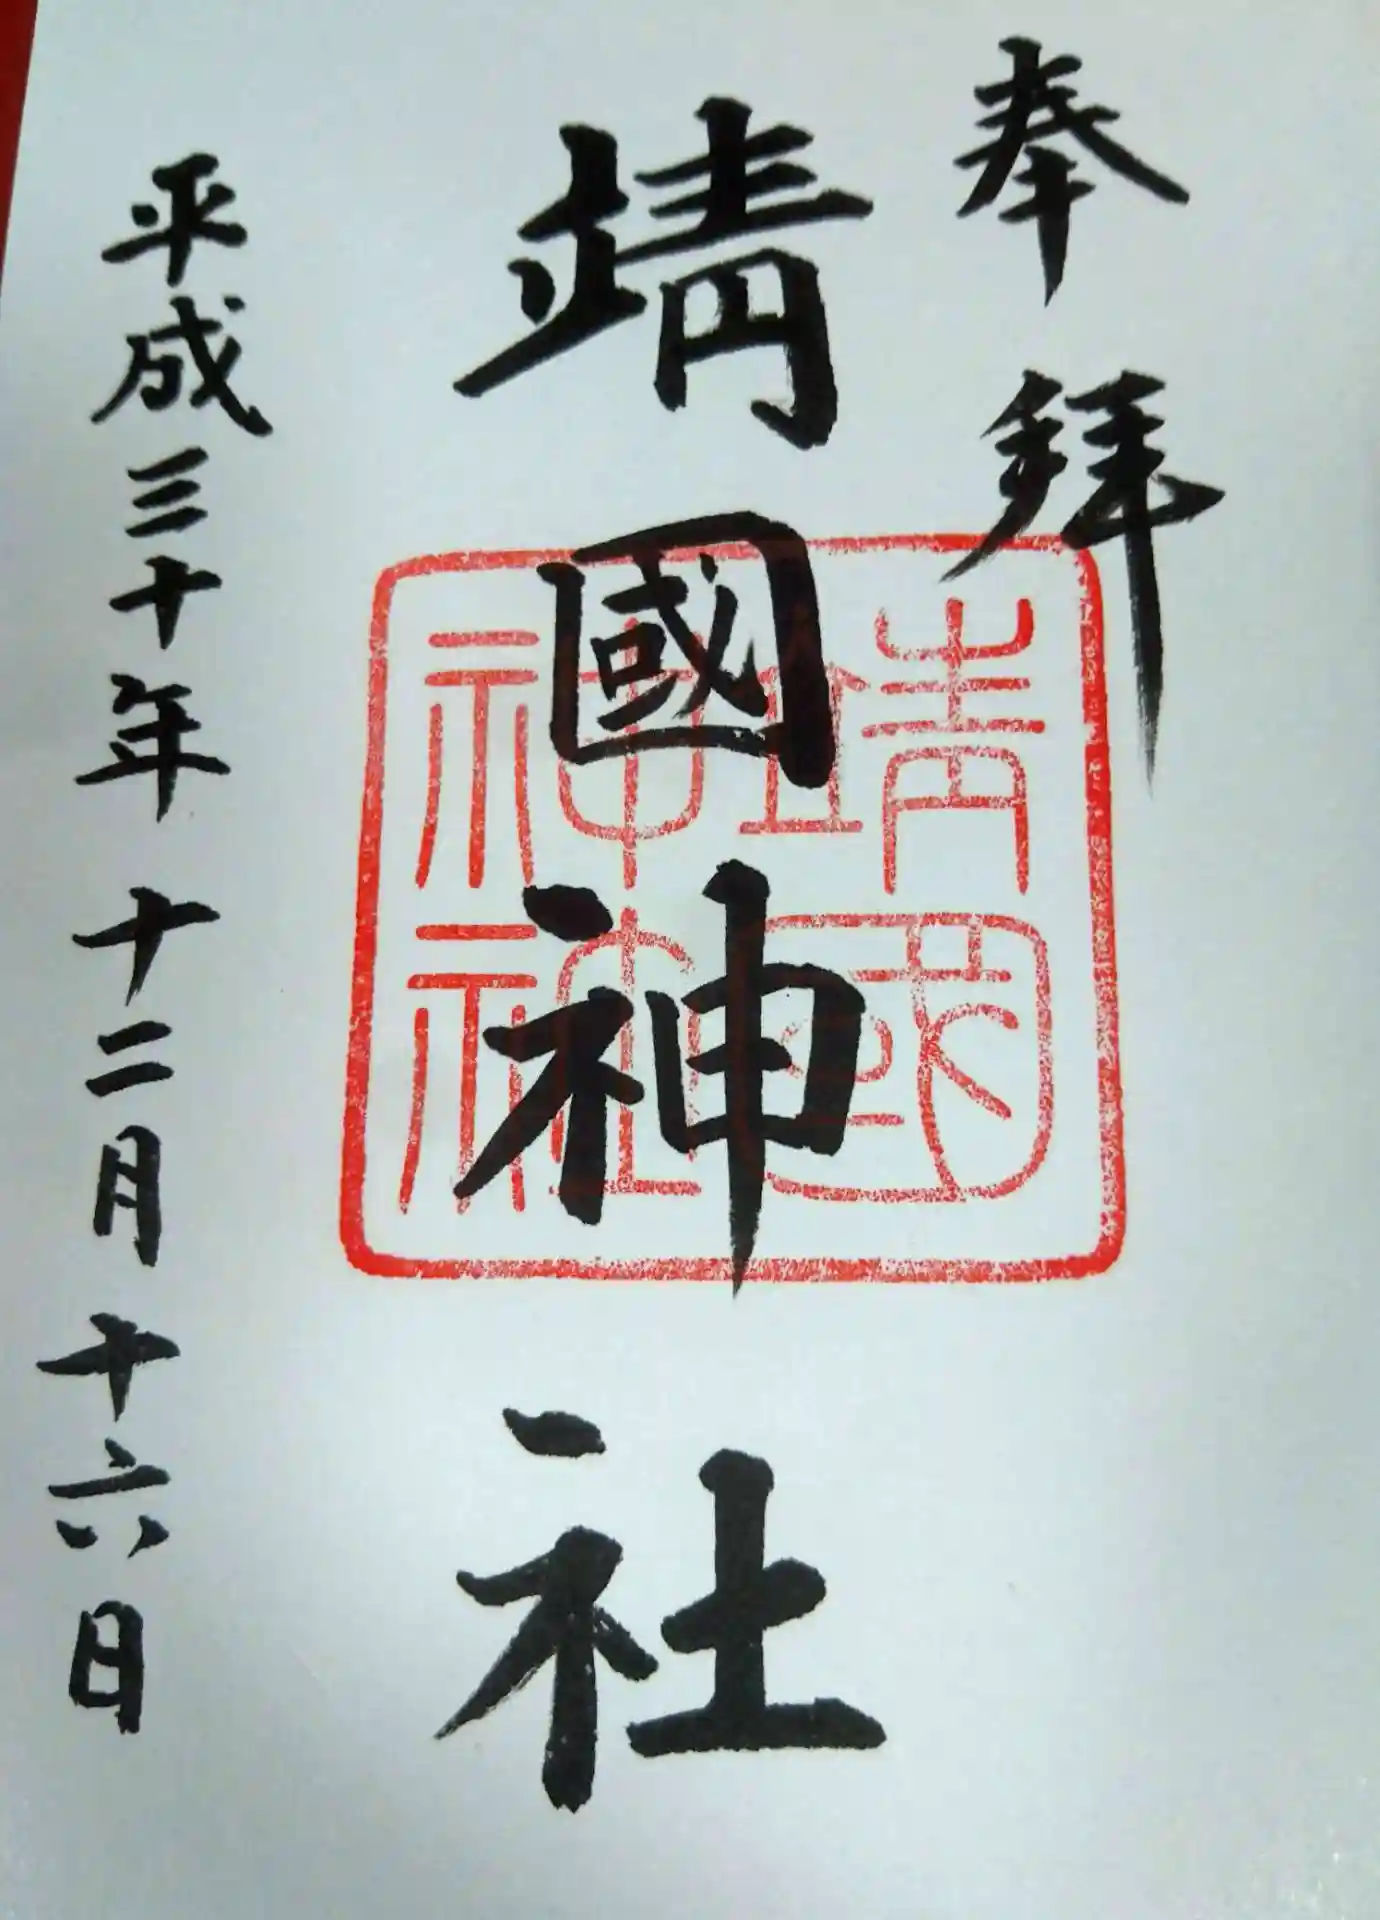 奉拝
靖國神社
靖國神社
平成三十年十二月十六日